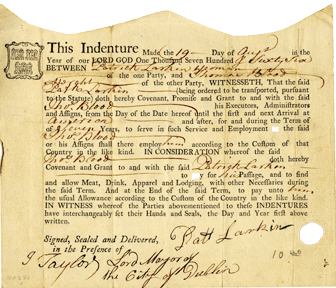 This Indenture Made the 19 Day of in the
Year of our LORD GOD One Thousand Seven Hundred & Sixty Six
BETWEEN Patrick Larkin
of the one Party, and Thomas Blood
of the other Party, WITNESSETH, That the said
Patk Larkin (being ordered to be transported, pursuant
to the Statute) doth hereby Covenant, Promise and Grant to and with the said
Thos Blood his Executors, Administrators
and Assigns, from the Day of the Date hereof until the first and next Arrival at
America and after, for and during the Term of
Seven Years, to serve in such Service and Employment the said
Thos Blood
or his Assigns shall there employ him according to the Custom of that
Country in the like kind. IN CONSIDERATION whereof the said
Thos Blood doth hereby
Covenant and Grant to and with the said Patrick Larkin
to pay for his Passage, and to find
and allow Meat, Drink, Apparel and Lodging, with other Necessaries during
the said Term. And at the End of the said Term, to pay unto him
the usual Allowance according to the Custom of the Country in the like kind.
IN WITNESS whereof the Parties abovementioned to these INDENTURES
have interchangeably set their Hands and Seals, the Day and Year first above
written.
Signed, Sealed and Delivered,
in the Presence of
Patt Larkin
J Taylor Lord Mayor of
the City of Dublin